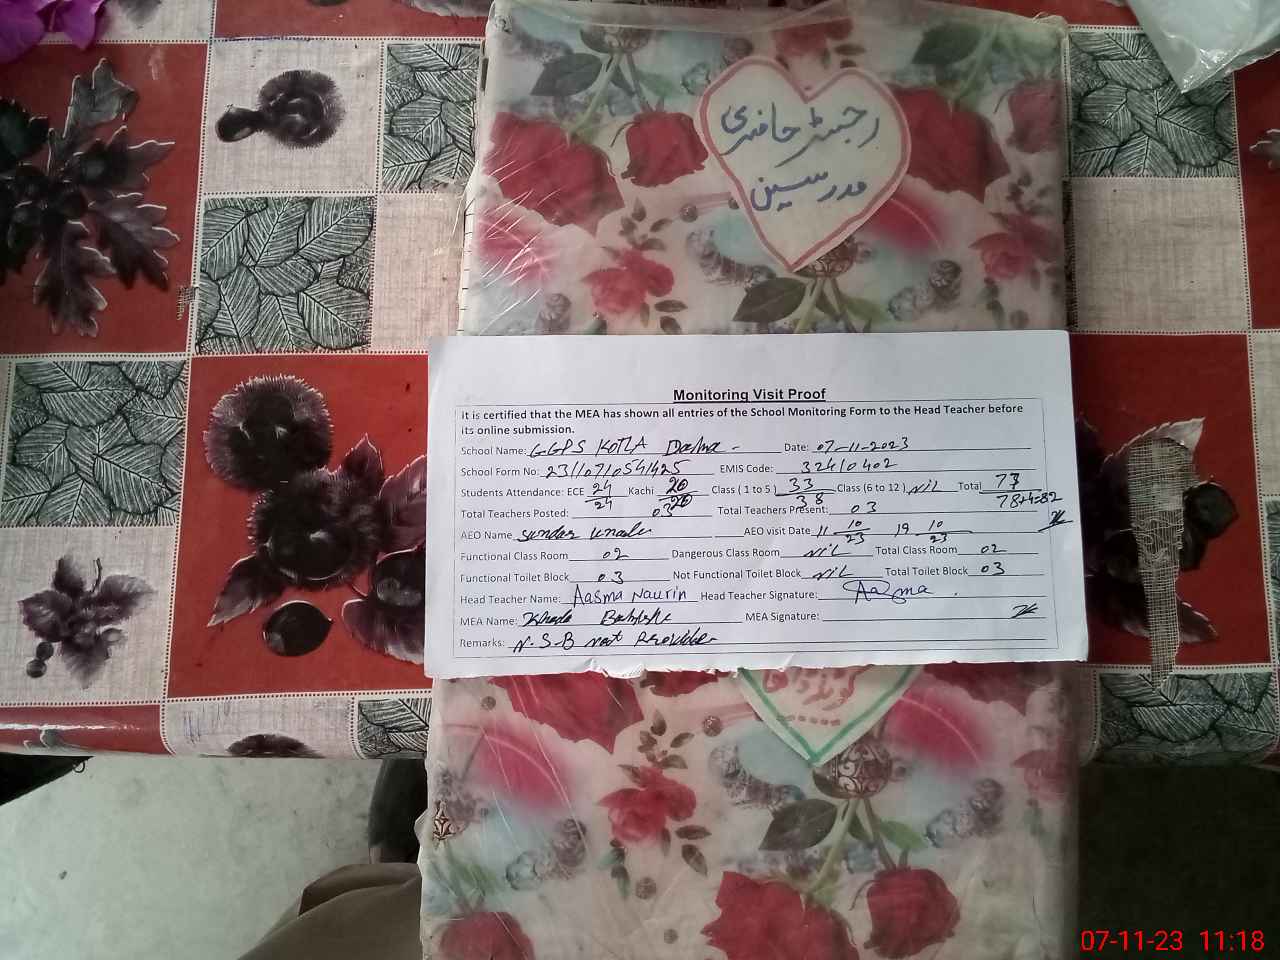 رجسٹر حاضری
مدرسین
Monitoring Visit Proof
It is certified that the MEA has shown all entries of the School Monitoring Form to the Head Teacher before
its online submission.
School Name: GGPS KOTLA Date: 07-11-2023
School Form No: EMIS Code: 32410402
Students Attendance: ECE 24/24 Kachi 20/20 Class ( 1 to 5 ) 33/38 Class (6 to 12 ) Nil Total 77
78+4=82
Total Teachers Posted: 03 Total Teachers Present: 03
AEO Name AEO visit Date 11 10/23 19 10/23
Functional Class Room 02 Dangerous Class Room Nil Total Class Room 02
Functional Toilet Block 03 Not Functional Toilet Block Nil Total Toilet Block 03
Head Teacher Name: Aasma Naurin Head Teacher Signature: Aasma
MEA Name: MEA Signature:
Remarks: N.S.B not Provide
07-11-23 11:18